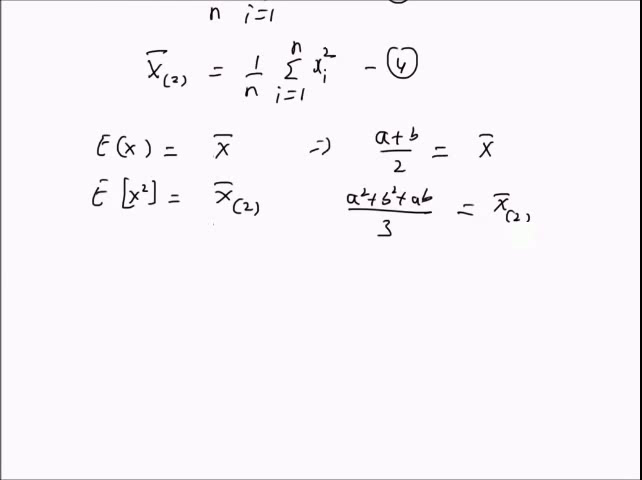 n i=1
x̄₍₂₎ = 1/n Σⁿᵢ₌₁ xᵢ² - ④
E(x) = x̄ ⇒ a+b/2 = x̄
E[x²] = x̄₍₂₎ a²+b²+ab/3 = x̄₍₂₎